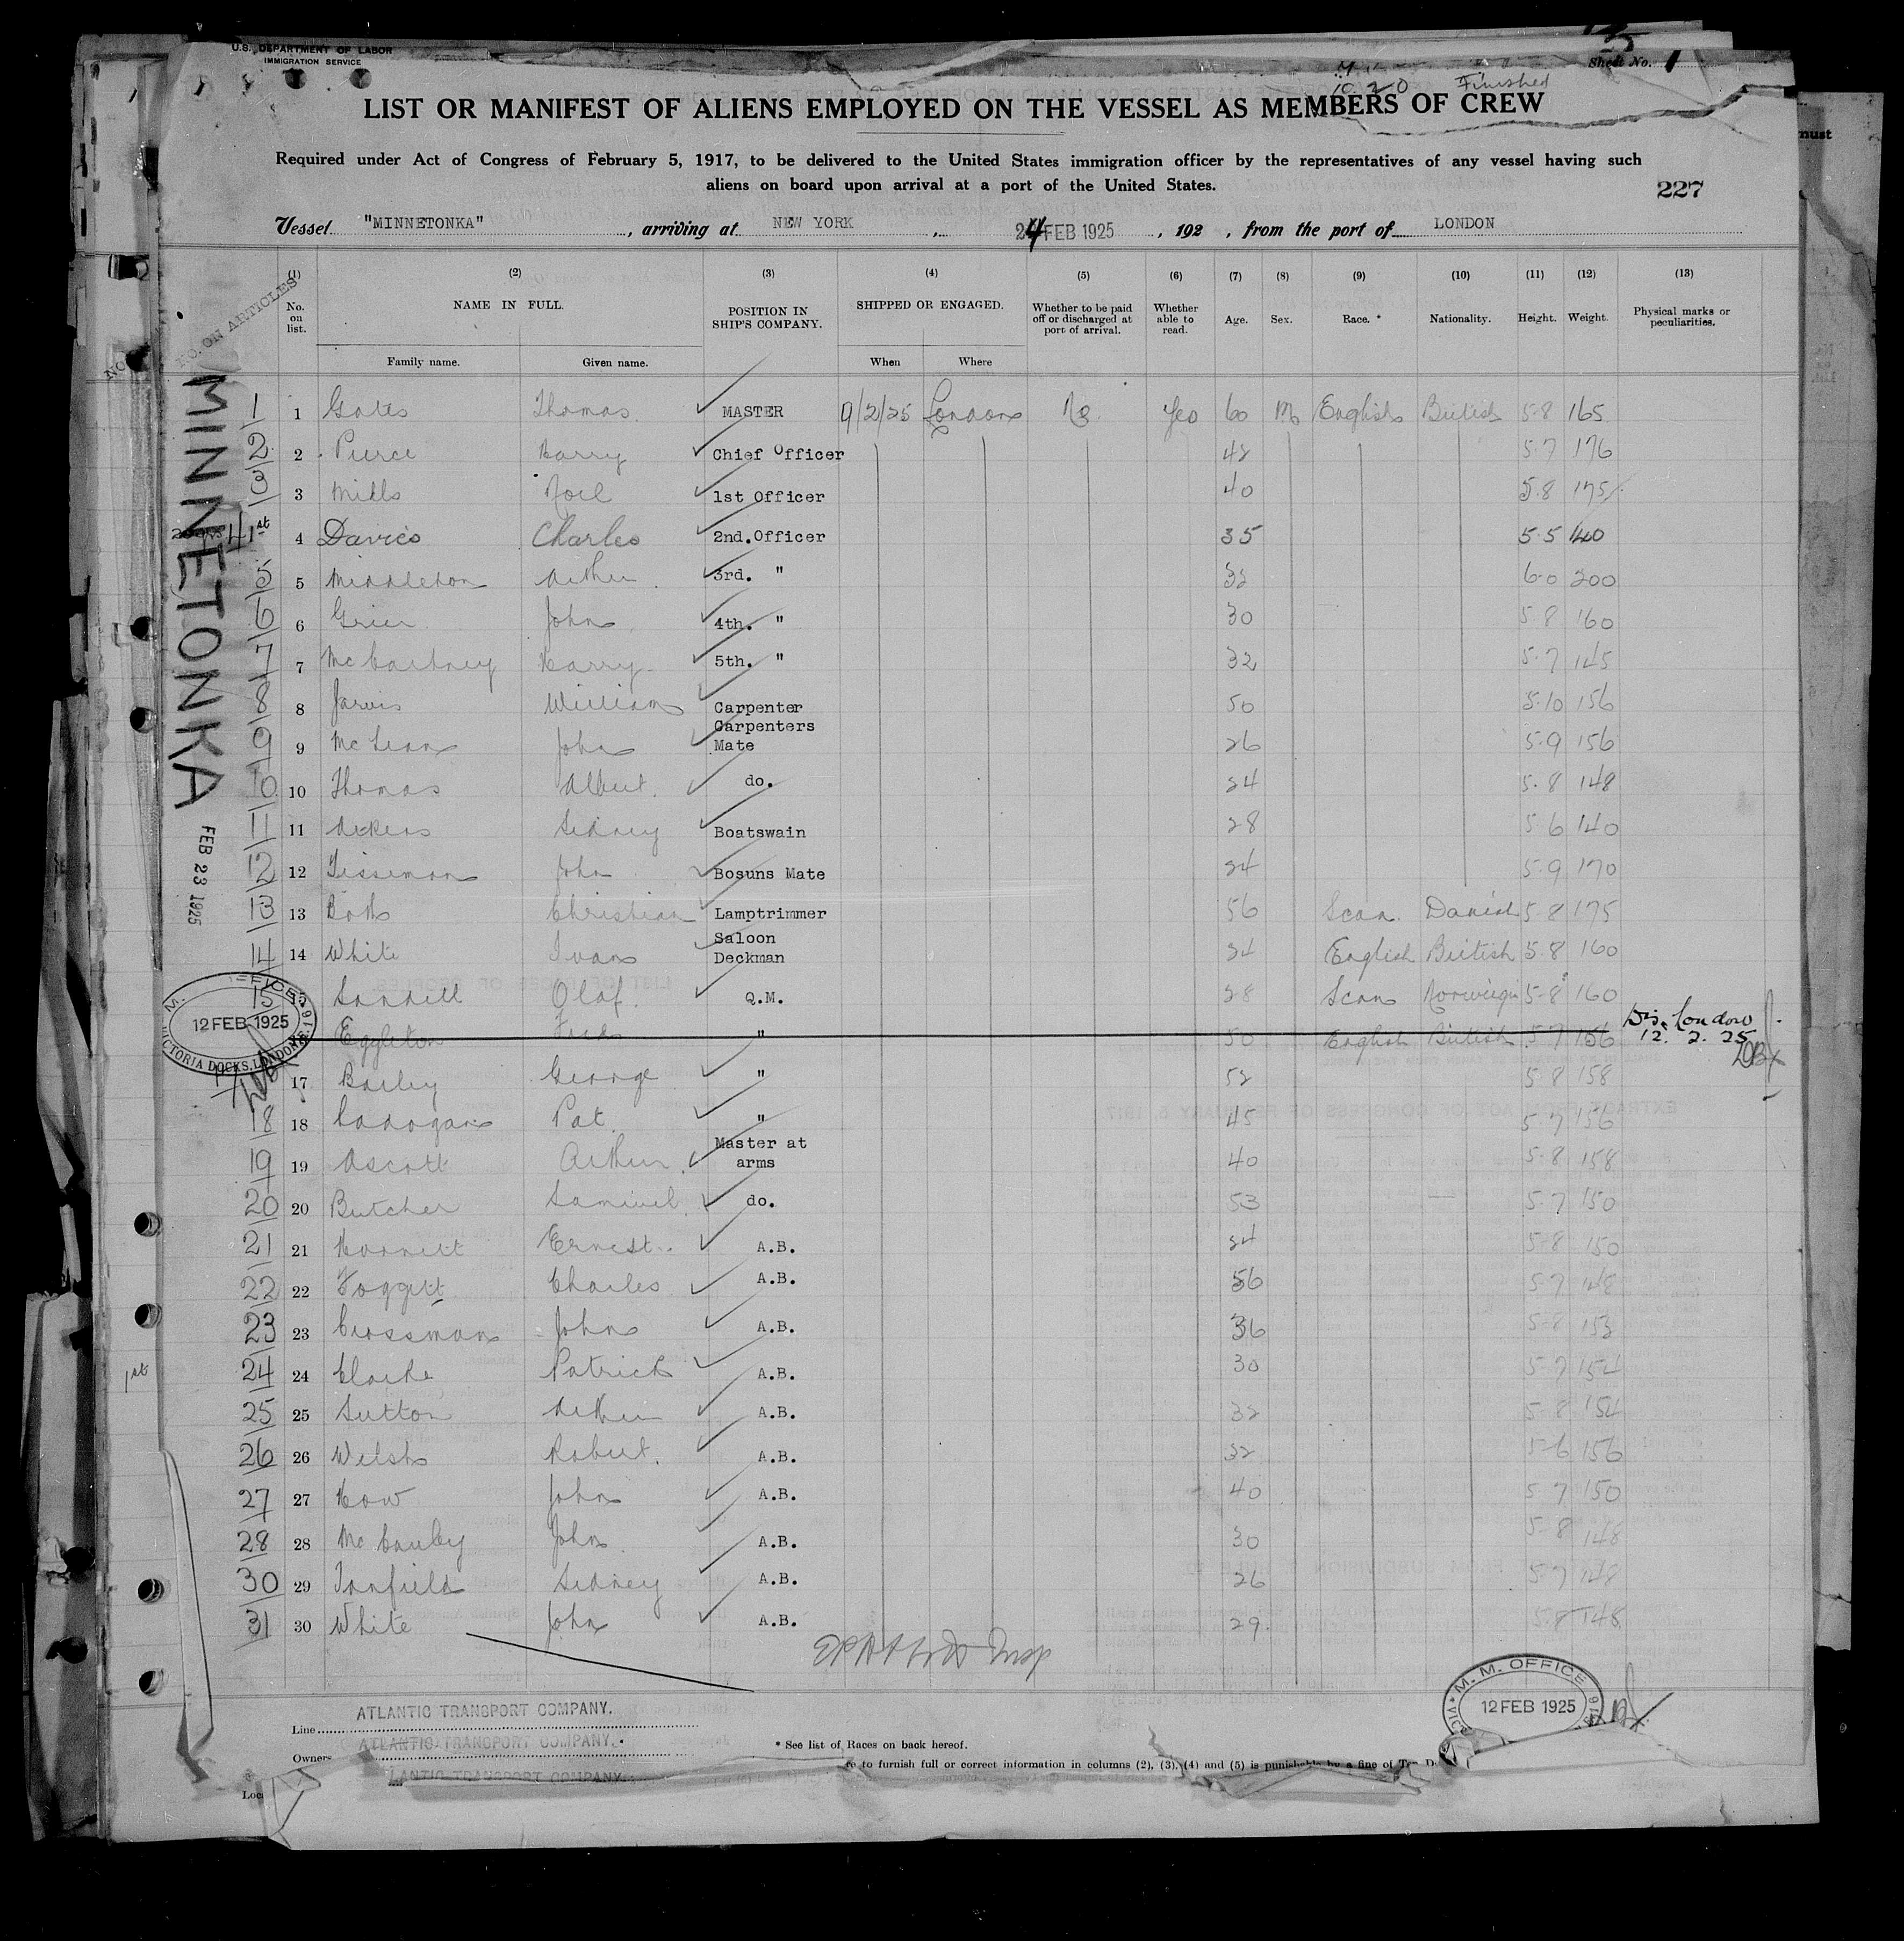 U.S. DEPARTMENT OF LABOR
IMMIGRATION SERVICE
Sheet No. 1
Finished
LIST OR MANIFEST OF ALIENS EMPLOYED ON THE VESSEL AS MEMBERS OF CREW
Required under Act of Congress of February 5, 1917, to be delivered to the United States immigration officer by the representatives of any vessel having such
aliens on board upon arrival at a port of the United States.
227
Vessel "MINNETONKA", arriving at NEW YORK, 24 FEB 1925, 192 , from the port of LONDON
NO. ON ARTICLES
MINNETONKA
FEB 23 1925
(1) (2) (3) (4) (5) (6) (7) (8) (9) (10) (11) (12) (13)
No. on list. NAME IN FULL. POSITION IN SHIP'S COMPANY. SHIPPED OR ENGAGED. Whether to be paid off or discharged at port of arrival. Whether able to read. Age. Sex. Race. * Nationality. Height. Weight. Physical marks or peculiarities.
Family name. Given name. When Where
1 1 Gates Thomas MASTER 9/2/25 London No. Yes 60 M English British 5-8 165
2 2 Pierce Harry Chief Officer 42 5-7 176
3 3 Mills Noel 1st Officer 40 5-8 175
4 1st 4 Davies Charles 2nd.Officer 35 5-5 140
5 5 Middleton Arthur 3rd. " 32 6-0 200
6 6 Grier John 4th. " 30 5 8 160
7 7 McCartney Harry 5th. " 32 5-7 145
8 8 Jarvis William Carpenter 50 5-10 156
9 9 McLean John Carpenters Mate 26 5-9 156
10 10 Thomas Albert. do. 24 5-8 148
11 11 Sidney Boatswain 28 5 6 140
12 12 Tisseman John Bosuns Mate 24 5-9 170
13 13 Christian Lamptrimmer 56 Scan. Danish 5-8 175
14 14 White Ivan Saloon Deckman 24 English British 5-8 160
15 15 Olaf. Q.M. 28 Scan Norwegian 5-8 160
Eggleton Fred " 50 English British 5-7 156 Dis. London 12. 2. 25
17 17 Bailey George " 52 5-8 158
18 18 Cadogan Pat. " 45 5-7 156
19 19 Ascott Arthur Master at arms 40 5-8 158
20 20 Butcher Samuel do. 53 5-7 150
21 21 Hornett Ernest. A.B. 24 5-8 150
22 22 Foggett Charles A.B. 56 5-7 148
23 23 Crossman John A.B. 36 5-8 153
24 24 Clarke Patrick A.B. 30 5-7 154
25 25 Sutton Arthur A.B. 32 5-8 154
26 26 Welsh Robert. A.B. 32 5-6 156
27 27 How John A.B. 40 5 7 150
28 28 McCauley John A.B. 30 5-8 148
30 29 Tanfield Sidney A.B. 26 5-7 148
31 30 White John A.B. 29. 5-8 148
1st
M.M. OFFICE
12 FEB 1925
VICTORIA DOCKS, LONDON
M. M. OFFICE
12 FEB 1925
Line ATLANTIC TRANSPORT COMPANY.
Owners ATLANTIC TRANSPORT COMPANY.
LANTIC TRANSPORT COMPANY.
* See list of Races on back hereof.
to furnish full or correct information in columns (2), (3), (4) and (5) is punishable by a fine of Ten